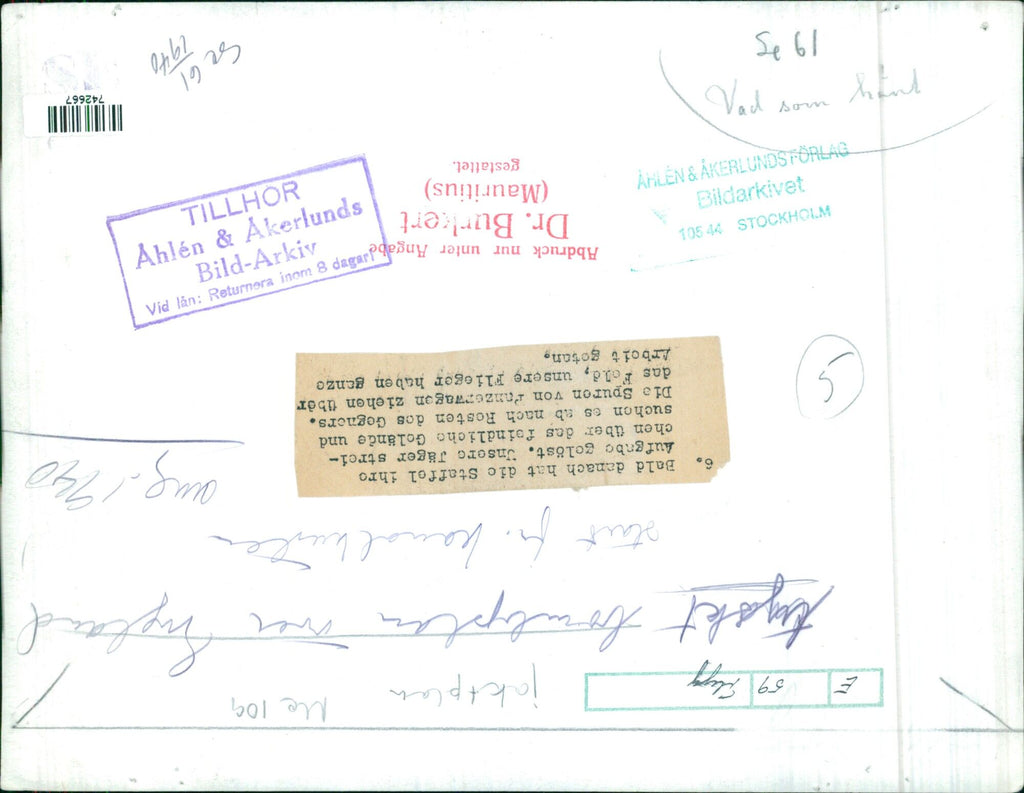 Se 61
1940
Se 61
Vad som hänt
742667
TILLHÖR
Åhlén & Åkerlunds
Bild-Arkiv
Vid lån: Returnera inom 8 dagar!
Abdruck nur unter Angabe
Dr. Burkert
(Mauritius)
gestattet.
ÅHLÉN & ÅKERLUNDS FÖRLAG
Bildarkivet
105 44 STOCKHOLM
5
6. Bald danach hat die Staffel ihre
Aufgabe gelöst. Unsere Jäger strei-
chen über das feindliche Gelände und
suchen es ab nach Resten des Gegners.
Die Spuren von Panzerwagen ziehen über
das Feld, unsere Flieger haben ganze
Arbeit getan.
aug. 1940
start fr. kanalkusten
tyskt bombplan över England
jaktplan
Me 109
E 59 Flyg